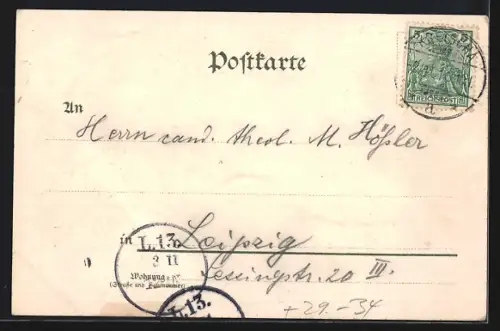 Postkarte
An
Herrn cand. theol. M. Hößler
in Leipzig
L.13.
3 II
Wohnung
(Straße und Hausnummer)
Lessingstr. 20 III.
L.13.
+29.-34